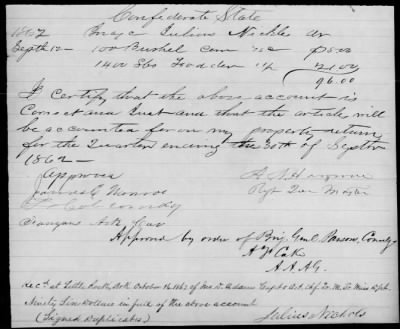 Confederate State
1862 Julius Nickles Dr
Septr 12 — 100 Bushel Corn 75c $75.00
1400 lbs Fodder 21.00
96.00
I certify that the above account is
Correct and Just and that the articles will
be accounted for on my property return
for the Quarter ending the 30th of Septbr
1862 —
Approved
James G Monroe
Lt Col Comdg
Rgt Qur Master
Approved by order of Brig Genl Parson, Comdg
A. A. A. G.
Rec'd at Little Rock Ark October 16 1862 of
Ninety Six Dollars in full of the above account
(Signed duplicates)
Julius Nichols